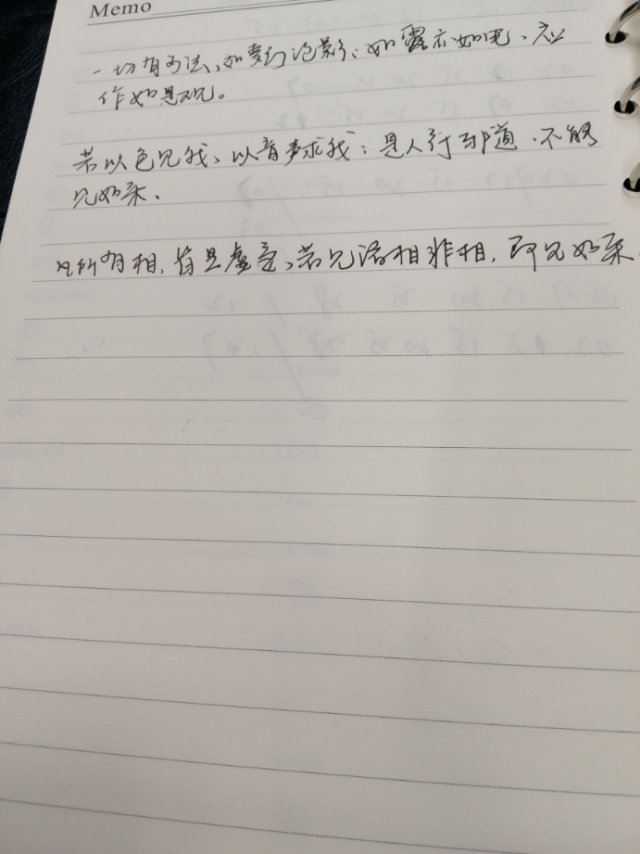 Memo
一切有为法、如梦幻泡影、如露亦如电、应
作如是观。
若以色见我、以音声求我；是人行邪道、不能
见如来.
凡所有相，皆是虚妄、若见诸相非相，即见如来.